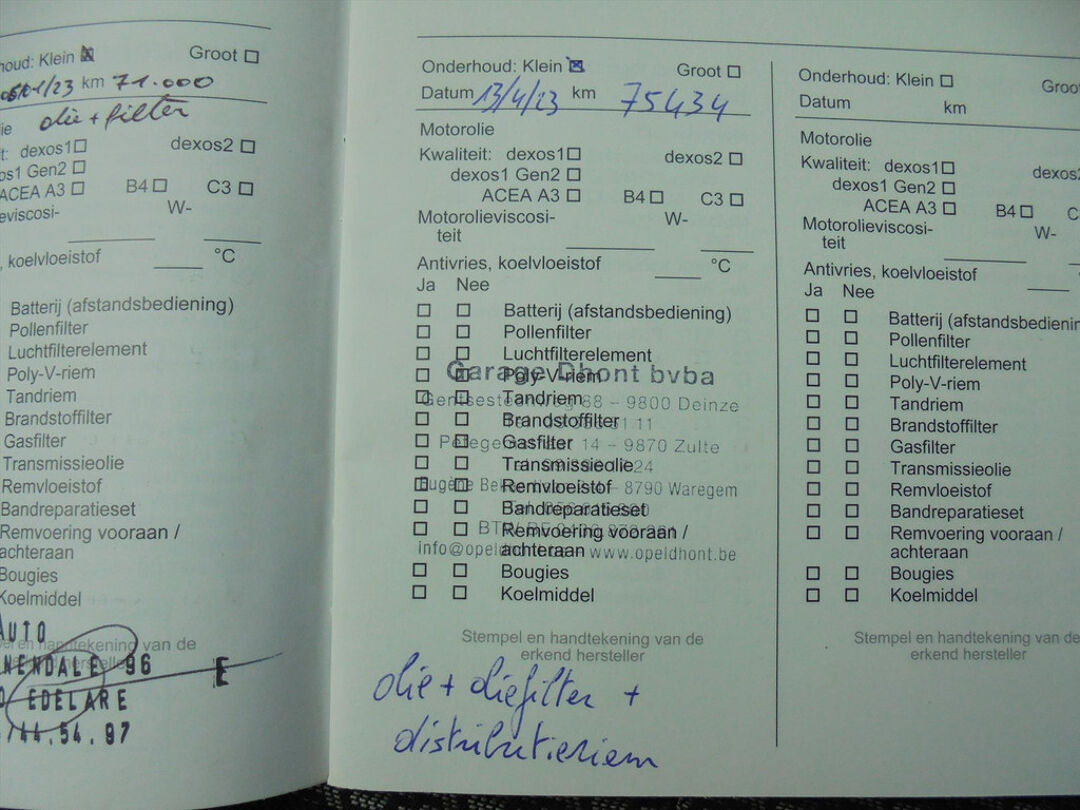 houd: Klein Groot
05/01/23 km 71.000
olie + filter
dexos1 dexos2
os1 Gen2
ACEA A3 B4 C3
eviscosi- W-
, koelvloeistof °C
Batterij (afstandsbediening)
Pollenfilter
Luchtfilterelement
Poly-V-riem
Tandriem
Brandstoffilter
Gasfilter
Transmissieolie
Remvloeistof
Bandreparatieset
Remvoering vooraan /
achteraan
Bougies
Koelmiddel
AUTO
en handtekening van de
NENDALE 96
EDELARE
E
44.54.97
Onderhoud: Klein Groot
Datum 13/4/23 km 75434
Motorolie
Kwaliteit: dexos1 dexos2
dexos1 Gen2
ACEA A3 B4 C3
Motorolieviscosi- W-
teit
Antivries, koelvloeistof °C
Ja Nee
Batterij (afstandsbediening)
Pollenfilter
Luchtfilterelement
Garage Dhont bvba
Poly-V-riem
Tandriem
88 - 9800 Deinze
Brandstoffilter
Gasfilter
14 - 9870 Zulte
Transmissieolie
Remvloeistof
- 8790 Waregem
Bandreparatieset
Remvoering vooraan /
achteraan
www.opeldhont.be
Bougies
Koelmiddel
Stempel en handtekening van de
erkend hersteller
olie + oliefilter +
distributieriem
Onderhoud: Klein Groot
Datum km
Motorolie
Kwaliteit: dexos1 dexos2
dexos1 Gen2
ACEA A3 B4 C
Motorolieviscosi- W-
teit
Antivries, koelvloeistof
Ja Nee
Batterij (afstandsbedienin
Pollenfilter
Luchtfilterelement
Poly-V-riem
Tandriem
Brandstoffilter
Gasfilter
Transmissieolie
Remvloeistof
Bandreparatieset
Remvoering vooraan /
achteraan
Bougies
Koelmiddel
Stempel en handtekening van de
erkend hersteller